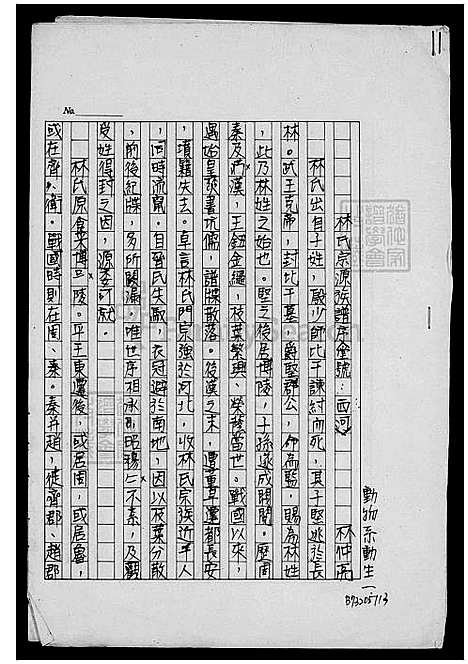 11
No.
動物系動生一
B73205713
林氏宗源族譜序堂號:西河
林仲亮
林氏出自子姓,殷少師比干諫紂而死,其子堅逃於長
林。武王克商,封比干墓,爵堅郡公,命為監,賜為林姓
,此乃林姓之始也。堅之後居博陵,子孫遂成閥閱。歷周
秦及兩漢,王鈕金繩,枝葉繁興、榮陵當世。戰國以來,
遇始皇焚書坑儒,譜牒散落。後漢之末,遭董卓遷都長安
,項籍失去。卓言林氏門宗強於河北,收林氏宗族近千人
,同時流竄。自晉氏失馭,衣冠避於南地,因以枝葉分散
,前後紀牒,多所闕漏,唯世序相承
昭穆
不紊,及
受姓得封之因,源委可
林氏原食菜博
陵。平王東遷後,或居周,或居魯,
或在齊、衛。戰國時則在周、秦。秦并趙,徙齊郡、趙郡